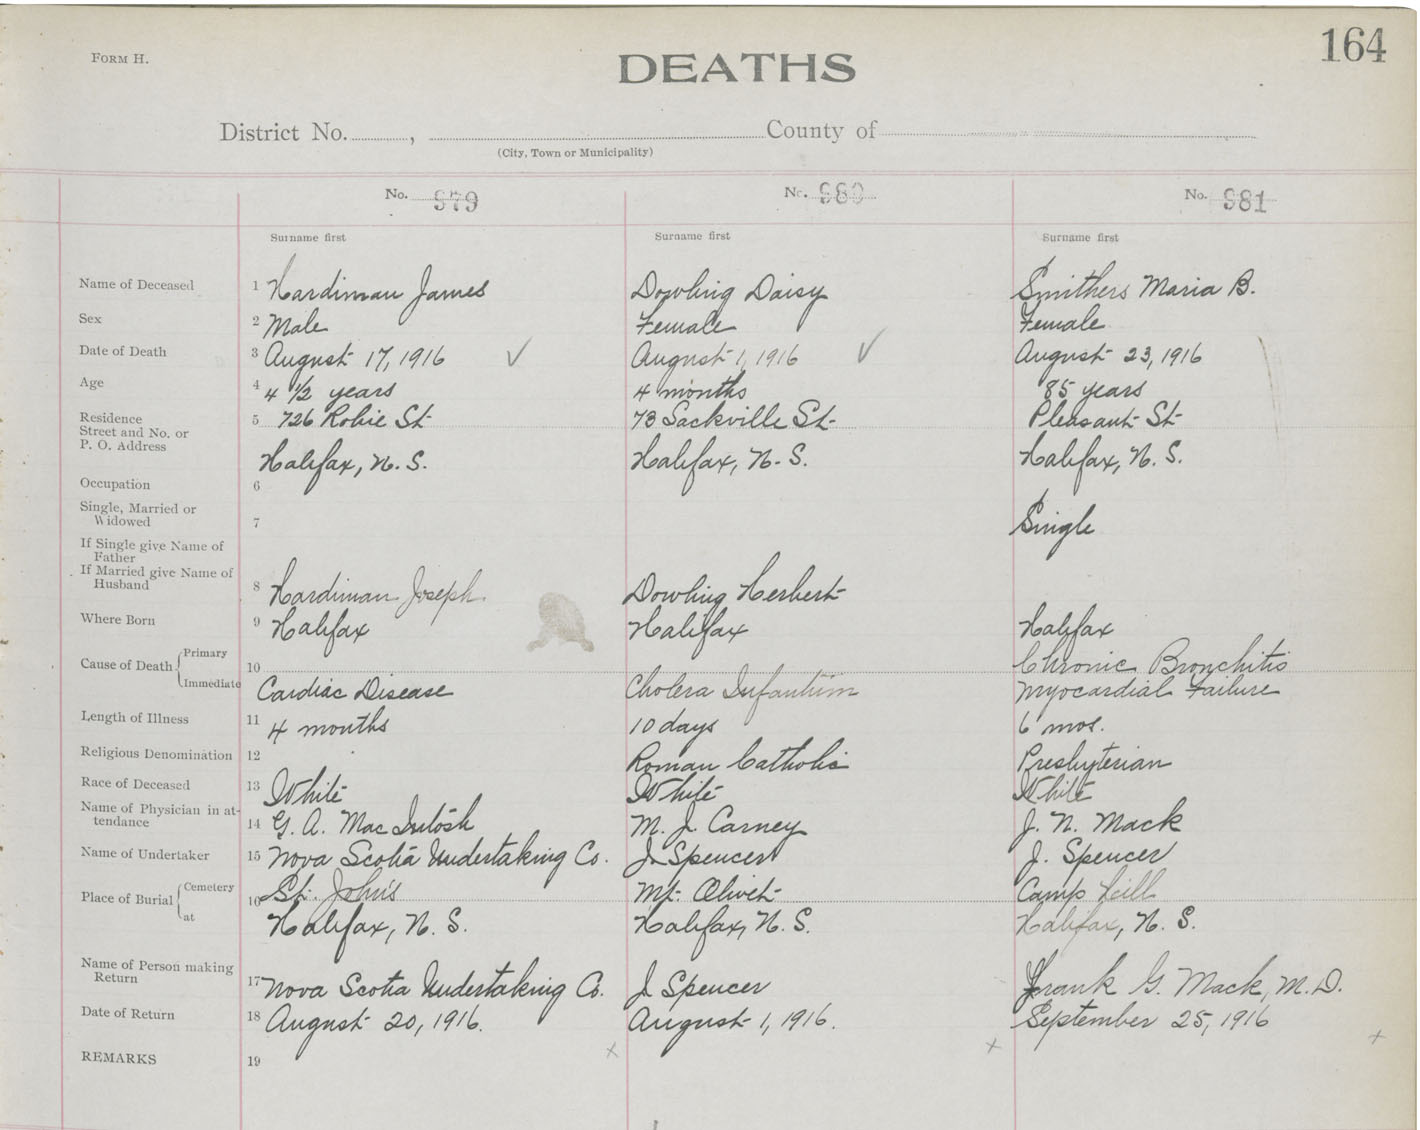 164
FORM H.
DEATHS
District No. , County of
(City, Town or Municipality)
No. 979 No. 980 No. 981
Surname first Surname first Surname first
Name of Deceased 1 Hardiman James Dowling Daisy Smithers Maria B.
Sex 2 Male Female Female
Date of Death 3 August 17, 1916 ✓ August 1, 1916 ✓ August 23, 1916
Age 4 4 1/2 years 4 months 85 years
Residence
Street and No. or 5 726 Robie St 73 Sackville St Pleasant St
P. O. Address
Halifax, N. S. Halifax, N. S. Halifax, N. S.
Occupation 6
Single, Married or
Widowed 7 Single
If Single give Name of
Father
If Married give Name of
Husband 8 Hardiman Joseph. Dowling Herbert
Where Born 9 Halifax Halifax Halifax
Cause of Death Primary 10 Chronic Bronchitis
Immediate Cardiac Disease Cholera Infantum Myocardial Failure
Length of Illness 11 4 months 10 days 6 mos.
Religious Denomination 12 Roman Catholic Presbyterian
Race of Deceased 13 White White White
Name of Physician in at-
tendance 14 G. A. MacIntosh M. J. Carney J. N. Mack
Name of Undertaker 15 Nova Scotia Undertaking Co. J Spencer J. Spencer
Place of Burial Cemetery 16 St. John's Mt. Olivet Camp Hill
at Halifax, N. S. Halifax, N. S. Halifax, N. S.
Name of Person making
Return 17 Nova Scotia Undertaking Co. J Spencer Frank G. Mack, M. D.
Date of Return 18 August 20, 1916. August 1, 1916. September 25, 1916
REMARKS 19 x x x